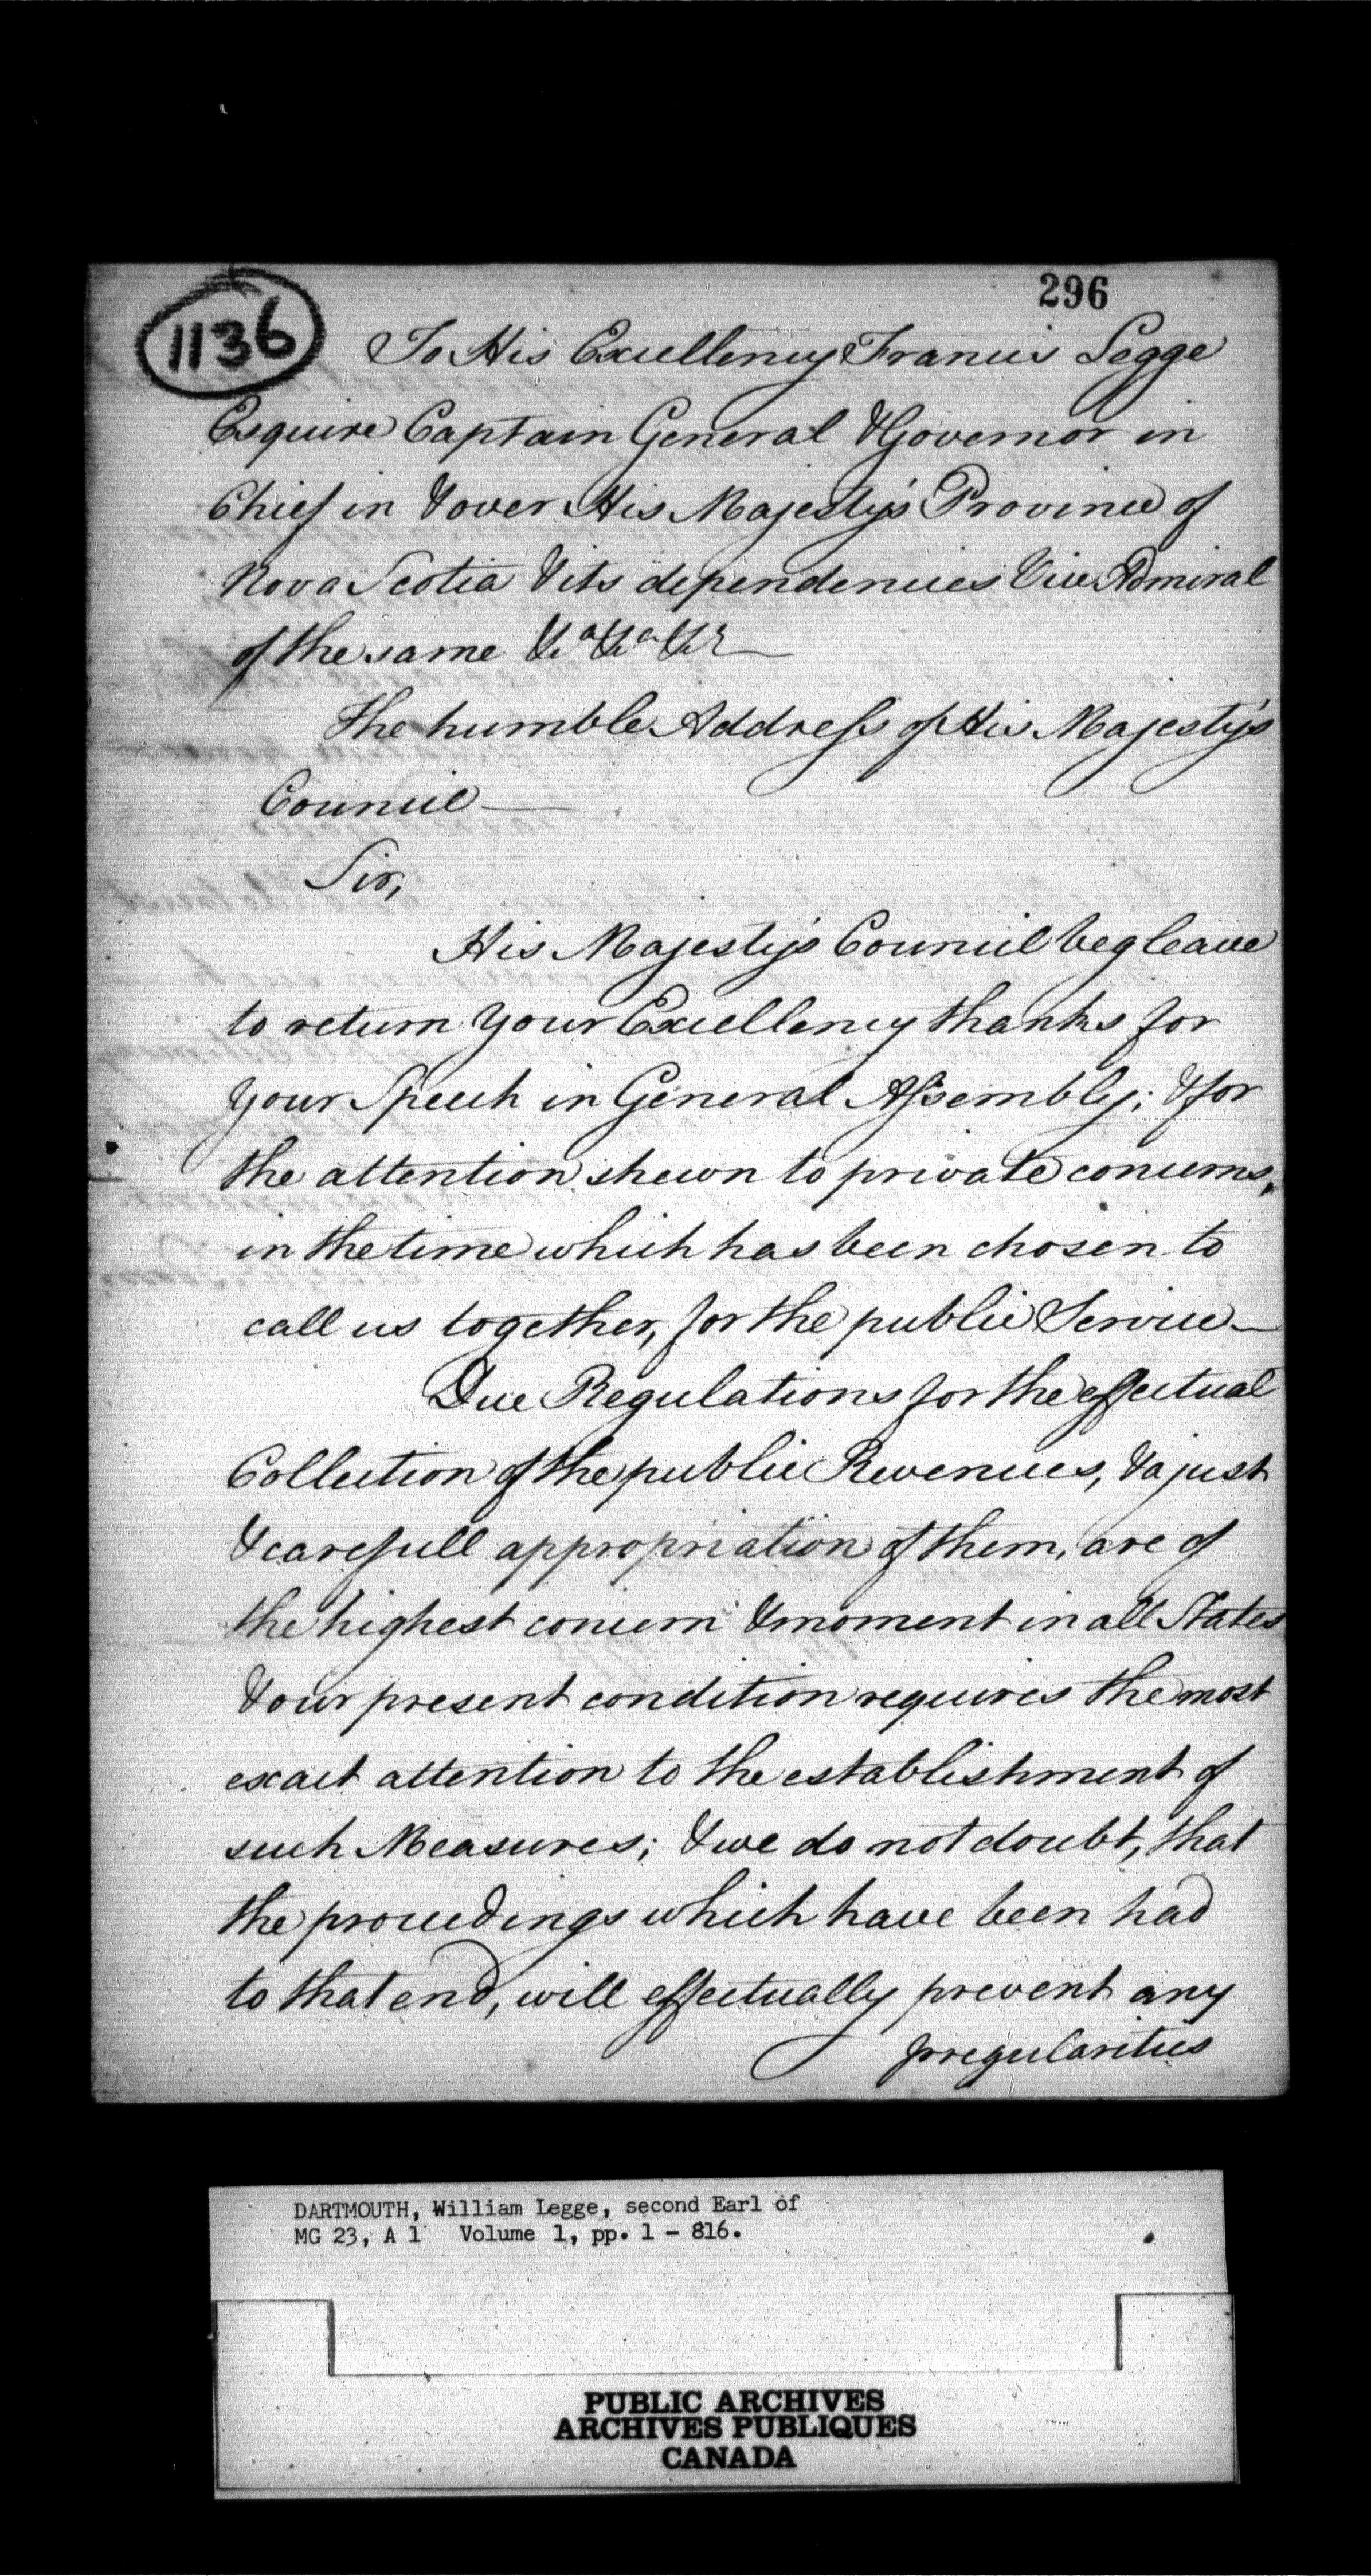 296
1136
To His Excellency Francis Legge
Esquire Captain General & Governor in
Chief in & over His Majesty's Province of
Nova Scotia & its dependencies Vice Admiral
of the same &ca &ca &c
The humble Address of His Majesty's
Council —
Sir,
His Majesty's Council beg leave
to return Your Excellency thanks for
your Speech in General Assembly; & for
the attention shewn to private concerns,
in the time which has been chosen to
call us together, for the public Service —
Due Regulations for the effectual
Collection of the public Revenues, & a just
& carefull appropriation of them, are of
the highest concern & moment in all States
& our present condition requires the most
exact attention to the establishment of
such Measures; & we do not doubt, that
the proceedings which have been had
to that end, will effectually prevent any
Irregularities
DARTMOUTH, William Legge, second Earl of
MG 23, A 1 Volume 1, pp. 1 - 816.
PUBLIC ARCHIVES
ARCHIVES PUBLIQUES
CANADA